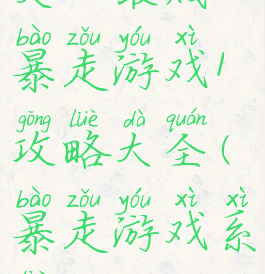 bào zǒu yóu xì
暴走游戏/
gōng lüè dà quán
攻略大全(
bào zǒu yóu xì xì
暴走游戏系